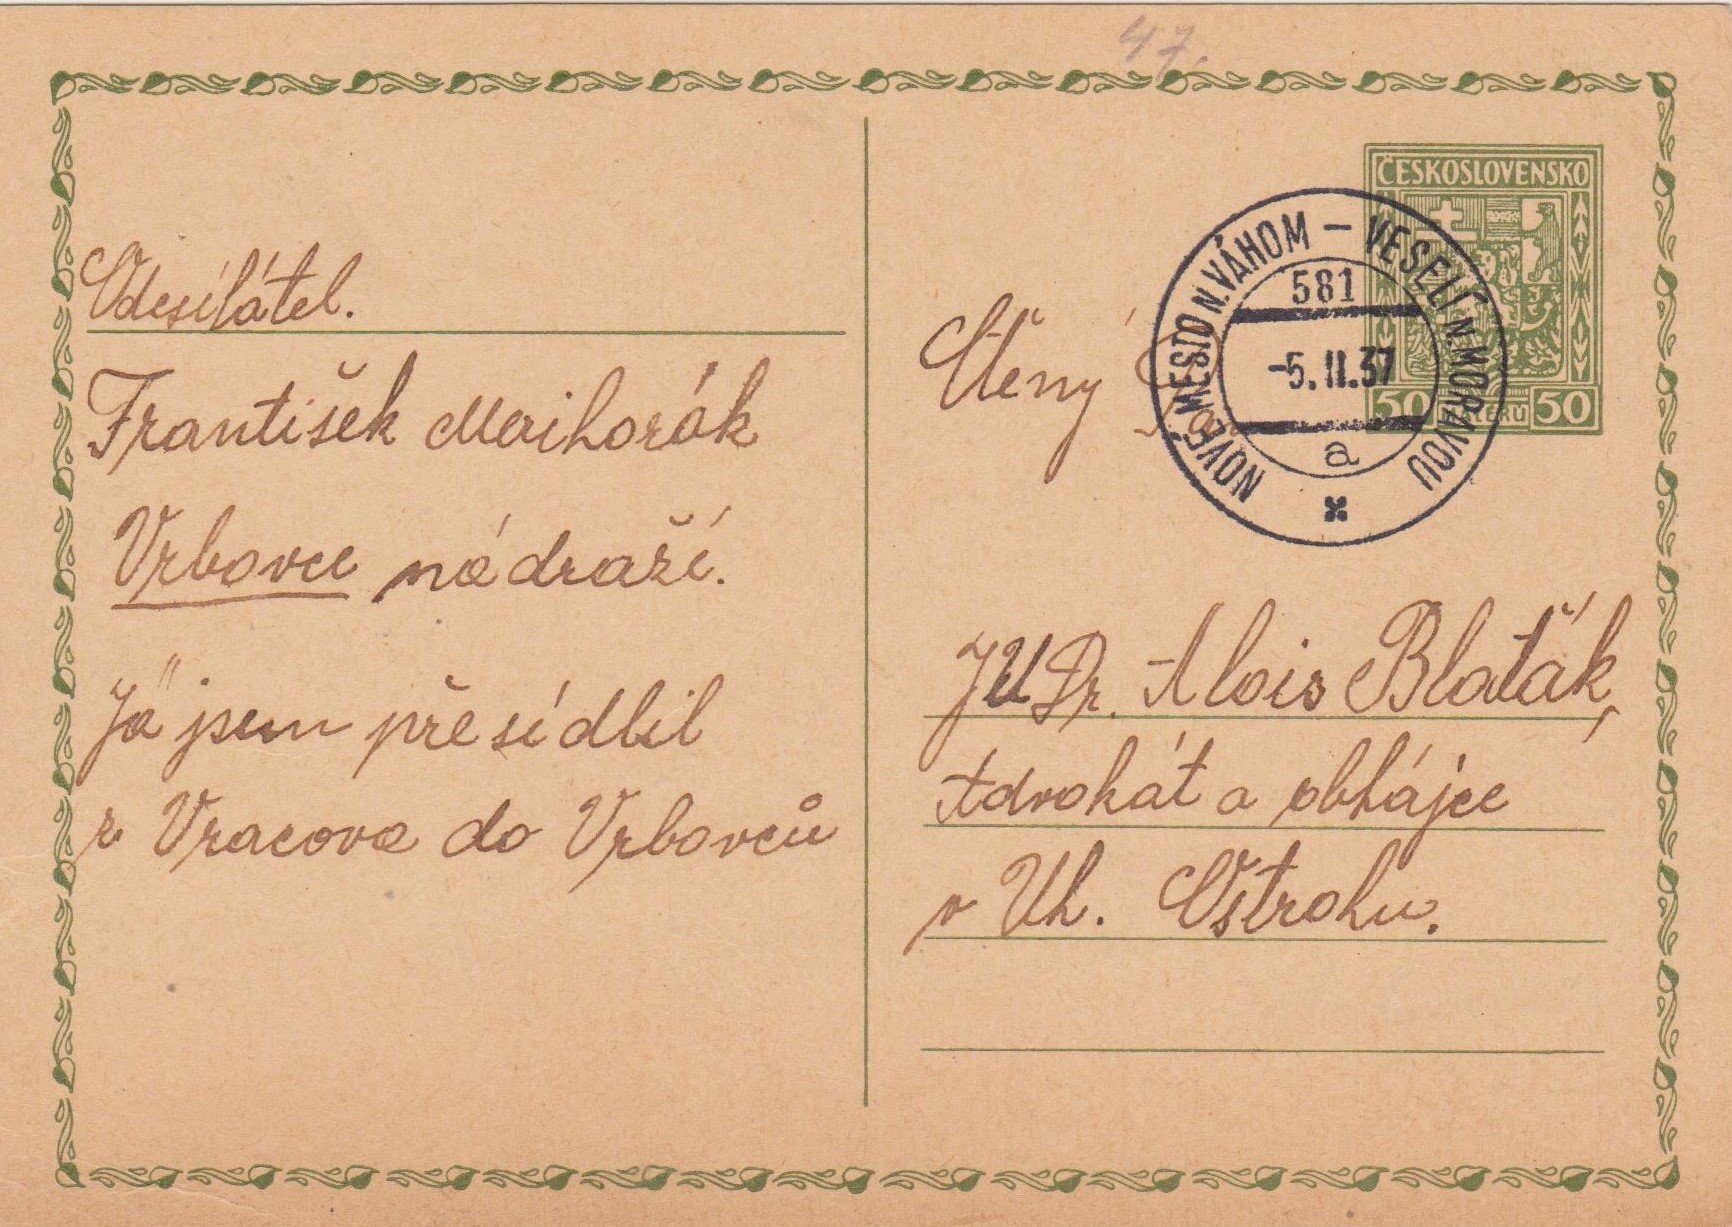 47.
ČESKOSLOVENSKO
50 HALÉŘŮ 50
NOVÉ MESTO N. VÁHOM – VESELÍ N. MORAVOU
581
-5. II. 37
a
Odesílátel.
František Maihorák
Vrbovce nádraží.
Já jsem přesídlil
z Vracova do Vrbovců
Ctěný
JUDr. Alois Blaťák,
Advokát a obhájce
v Uh. Ostrohu.